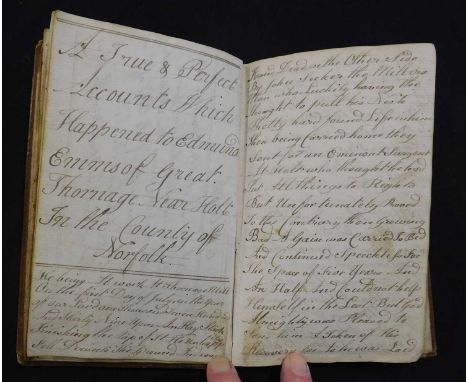 A True & Perfect
Accounts Which
Happened to Edmund
Emms of Great
Thornage Near Holt
In the County of
Norfolk.
He being at work at thornage Mill
On the first Day of July in the Year
of our Lord one thousand seven Hundred
And Sixty Nine Upon An Hay Stack
Finishing the top of it
Fell Down to the Ground
Dead on the Other Side
By John Secker the Millers
Man who Luckily having the
thought to pull his Neck
Pretty hard found Life in him
then being Carried home they
Sent for an Eminent Surgent
At Holt who thought he had
Put All things to Rights
But Unfortunately Proved
To the Contrary then Growing
Bad A Gain was Carried to Bed
And Continued Speechless for
The Space of Four Years And
An Half And Could not help
Himself in the Least But God
Almighty was Pleased to
Show him A Token of this
Recovery for he was Laid